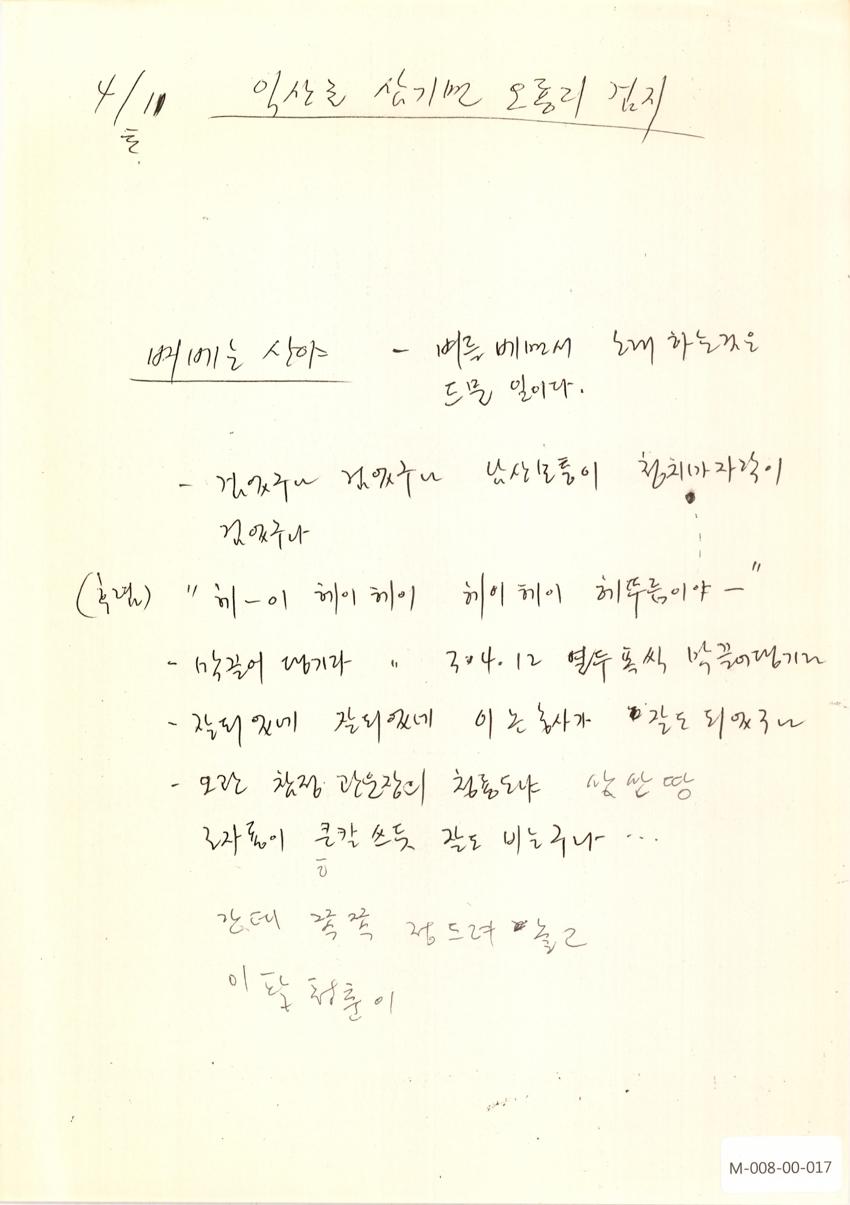 4/11 익산군 삼기면 오룡리 검지
토
벼베는 산야 - 벼를 베면서 노래 하는것은
드문 일이다.
- 검었구나 검었구나 남산모퉁이 청치마자락이
검었구나
(후렴) " 헤-이 헤이헤이 헤이헤이 헤뚜름이야 - "
- 막끌어 댕기라 " 3.4.12 열두폭씩 막끌어댕기라
- 잘되었네 잘되었네 이논농사가 잘도 되었구나
- 오관 참장 관운장의 청룡도냐 상산땅
조자룡이 큰칼 쓰듯 잘도 비는구나 ...
간데 쪽쪽 정드려 놓고
이팔청춘이
M-008-00-017